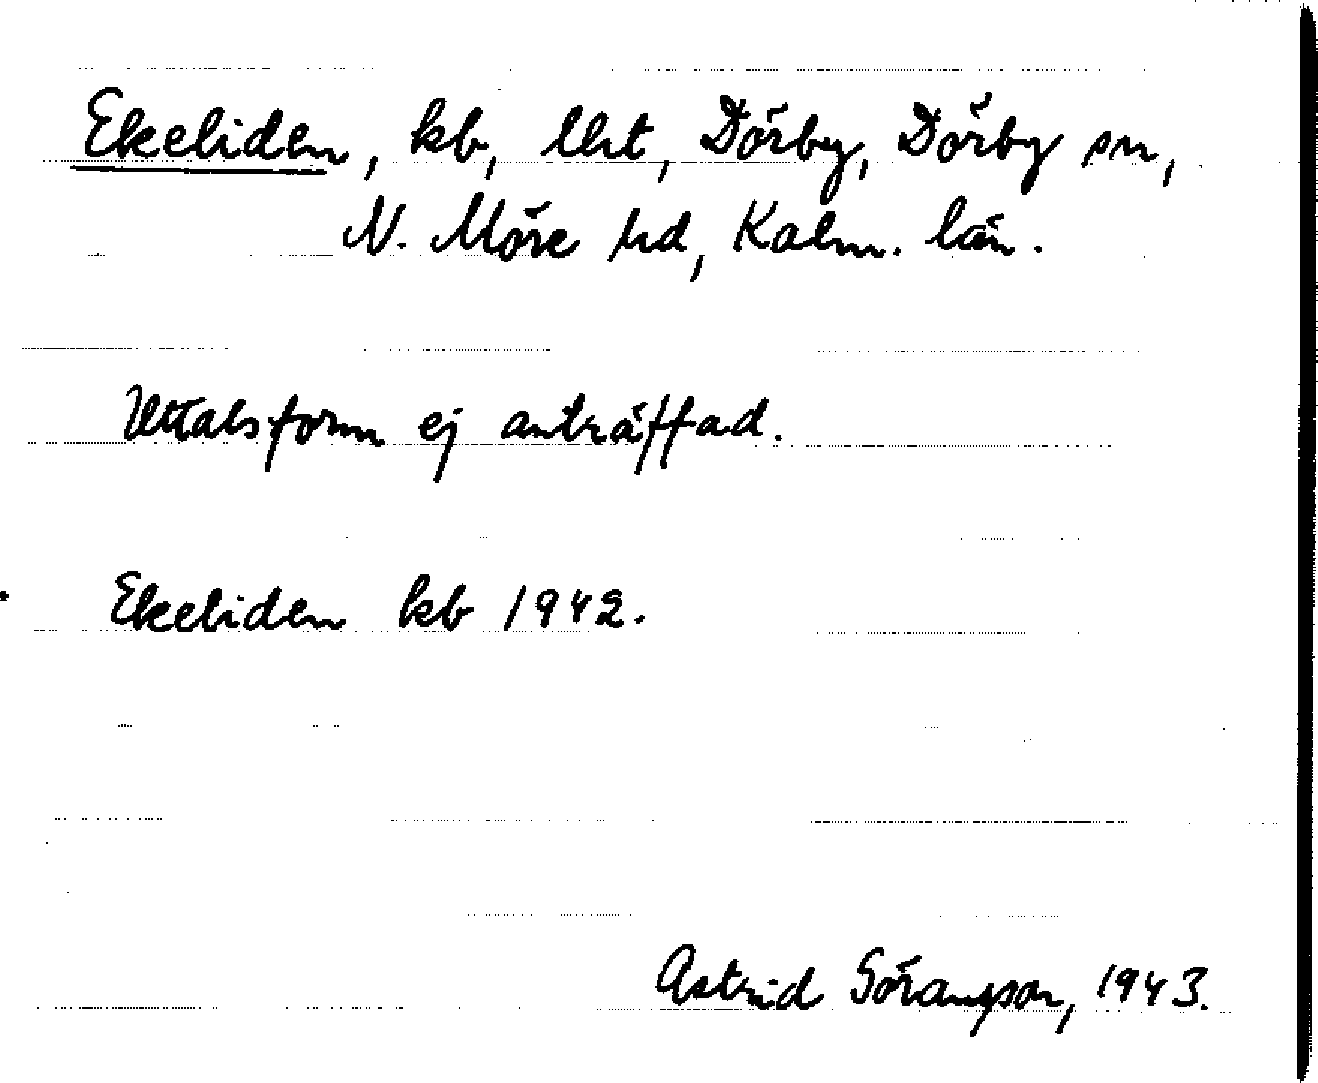 Ekeliden, kb, lht, Dörby, Dörby sn,
N. Möre hd, Kalm. län.
Uttalsform ej anträffad.
Ekeliden kb 1942.
Astrid Göransson, 1943.